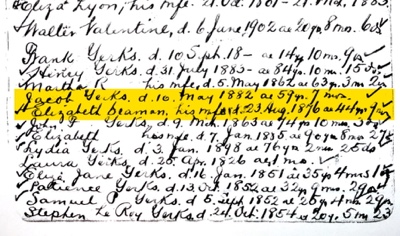 Eliza Lyon, his wife. d. 21 Oct. 1801 - 21
Walter Valentine, d. 6 June, 1902 ae 20 yr 8 mo. 6 ds
Frank Yerks. d. 10 Sept. 18 - ae 14 yr 10 mo. 9 ds
Hirley Yerks. d. 31 July 1883 - ae 84 yr. 10 mo. 15 ds
Martha R his wife, d. 5 May 1862 ae 63 yr. 3 mo.
Jacob Yerks. d. 16. May 1882 ae 59 yr. 7 mo.
Elizabeth Beaman, his wife d. 23 Aug, 1896 ae 44 yr
John Yerks d. 9 Mch. 1863 ae 94 yr 10 mo
Elizabeth his wife d. 7 Jan. 1835 ae 40 yr 8 mo 27
Lydia Yerks. d. 3 Jan. 1898 ae 76 yr 2 mo 25 ds
Laura Yerks. d. 25 Apr. 1826 ae 1 mo.
Eliza Jane Yerks, d. 16 Jan. 1851 ae 35 yr 4 ms
Patience Yerks. d. 13 Oct. 1852 ae 32 yr 9 mo. 29
Samuel P Yerks d 5 Sept 1852 ae 25 yr 4 mo 29
Stephen Le Roy Yerks d. 24 Oct. 1854 ae 20 yr. 5 ms 23